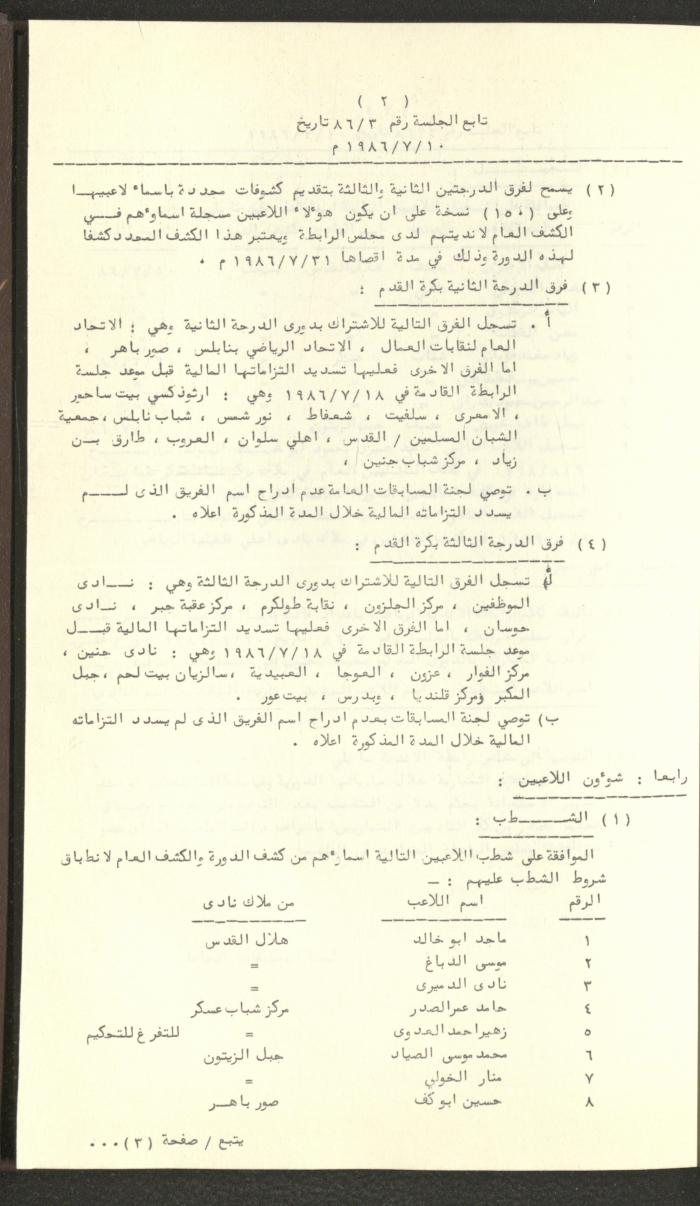 ( ٢ )
تابع الجلسة رقم ٨٦/٣ تاريخ
١٩٨٦/٧/١٠ م
(٢) يسمح لفرق الدرجتين الثانية والثالثة بتقديم كشوفات محددة باسماء لاعبيهــا
وعلى (١٥٠) نسخة على ان يكون هؤلاء اللاعبين مسجلة اسماؤهم فــي
الكشف العام لانديتهم لدى مجلس الرابطة ويعتبر هذا الكشف المحدد كشفا
لهذه الدورة وذلك في مدة اقصاها ١٩٨٦/٧/٣١ م ٠
(٣) فرق الدرجة الثانية بكرة القدم :
أ . تسجل الفرق التالية للاشتراك بدورى الدرجة الثانية وهي : الاتحاد
العام لنقابات العمال ، الاتحاد الرياضي بنابلس ، صور باهر ،
اما الفرق الاخرى فعليها تسديد التزاماتها المالية قبل موعد جلسة
الرابطة القادمة في ١٩٨٦/٧/١٨ وهي : ارثوذكسي بيت ساحور
، الامعرى ، سلفيت ، شعفاط ، نور شمس ، شباب نابلس ، جمعية
الشبان المسلمين / القدس ، اهلي سلوان ، العروب ، طارق بــن
زياد ، مركز شباب جنين ،
ب . توصي لجنة المسابقات العامة عدم ادراج اسم الفريق الذى لــم
يسدد التزاماته المالية خلال المدة المذكورة اعلاه .
(٤) فرق الدرجة الثالثة بكرة القدم :
أ) تسجل الفرق التالية للاشتراك بدورى الدرجة الثالثة وهي : نــادى
الموظفين ، مركز الجلزون ، نقابة طولكرم ، مركز عقبة جبر ، نــادى
حوسان ، اما الفرق الاخرى فعليها تسديد التزاماتها المالية قبــل
موعد جلسة الرابطة القادمة في ١٩٨٦/٧/١٨ وهي : نادى جنين ،
مركز الفوار ، عزون ، العوجا ، العبيدية ، سالزيان بيت لحم ، جبل
المكبر ومركز قلنديا ، وبدرس ، بيت عور .
ب) توصي لجنة المسابقات بعدم ادراج اسم الفريق الذى لم يسدد التزاماته
المالية خلال المدة المذكورة اعلاه .
رابعا : شوؤون اللاعبين :
(١) الشــــطب :
الموافقة على شطب اللاعبين التالية اسماؤهم من كشف الدورة والكشف العام لانطباق
شروط الشطب عليهم : ــ
الرقم اسم اللاعب من ملاك نادى
١ ماجد ابو خالد هلال القدس
٢ موسى الدباغ =
٣ نادى الدميرى =
٤ حامد عمر الصدر مركز شباب عسكر
٥ زهير احمد العدوى = للتفرغ للتحكيم
٦ محمد موسى الصياد جبل الزيتون
٧ منار الخولي =
٨ حسين ابو كف صور باهــر
يتبع / صفحة (٣) ٠٠٠